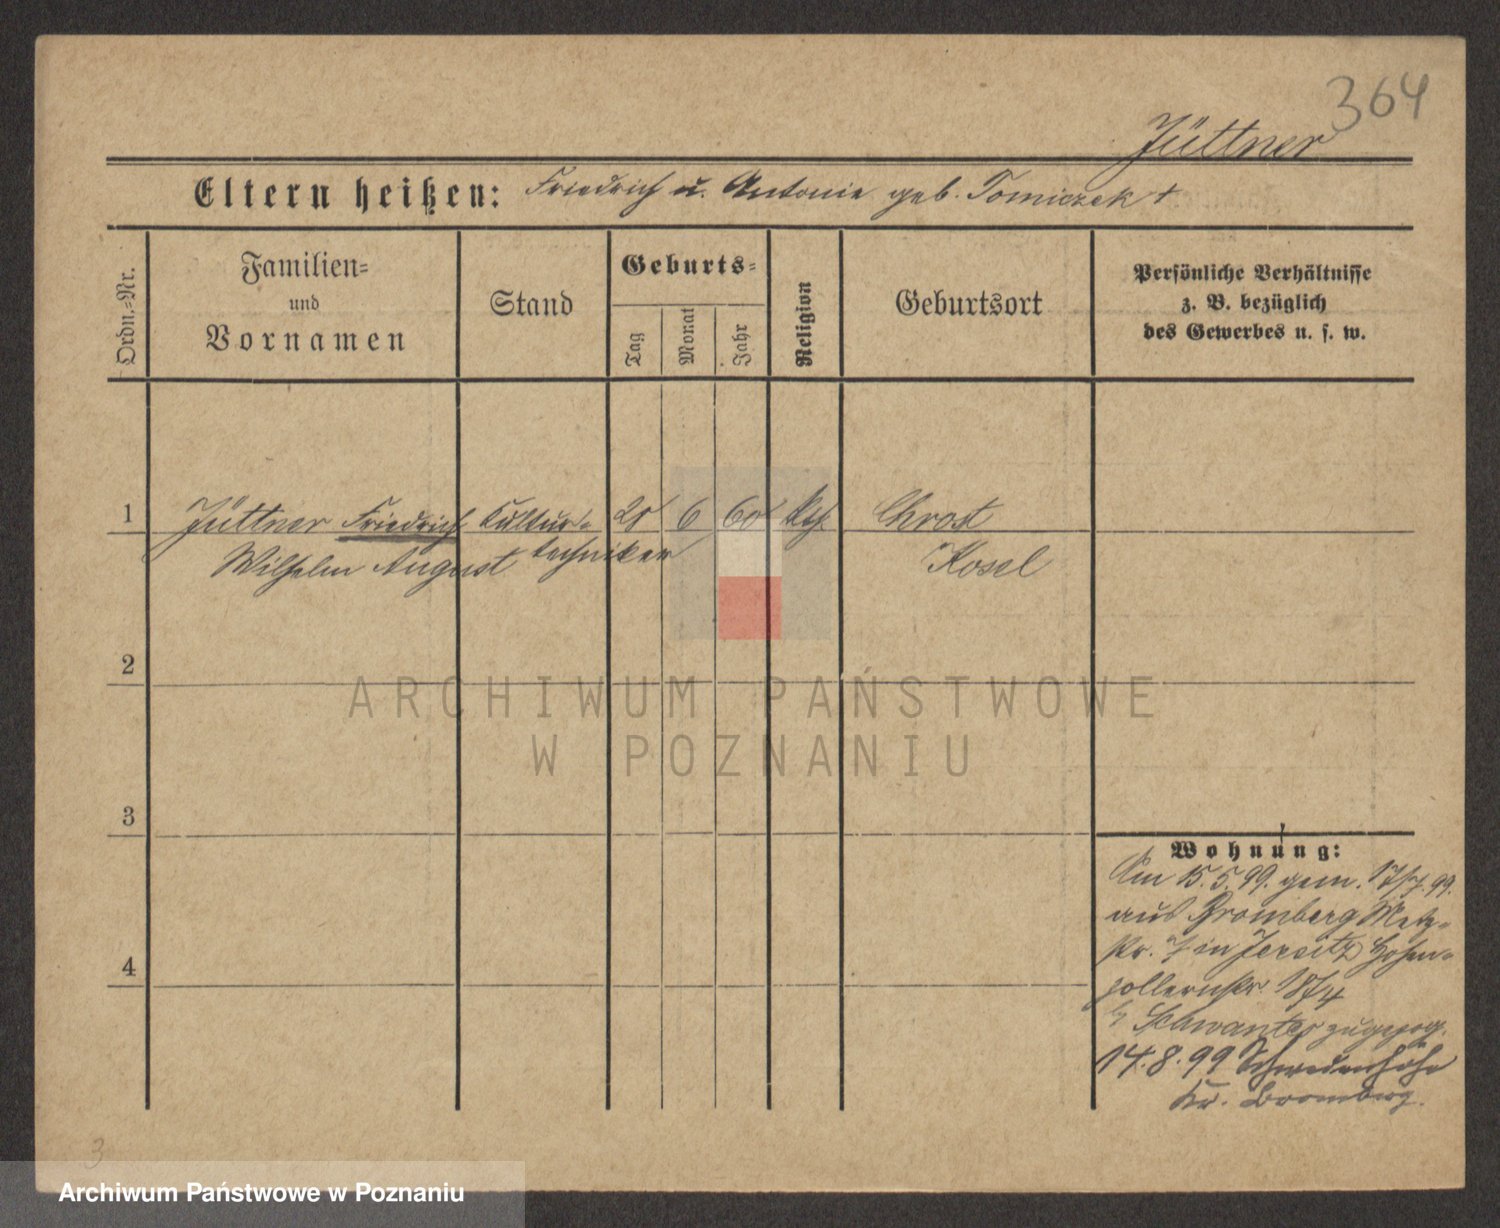 364
Jüttner
Eltern heißen: Friedrich u. Antonie geb. Tomiczek +
Ordn.-Nr.
Familien-
und
Vornamen
Stand
Geburts-
Tag
Monat
Jahr
Religion
Geburtsort
Persönliche Verhältnisse
z. B. bezüglich
des Gewerbes u. s. w.
1 Jüttner Friedrich Kultur- 28 6 60 kth Chrost
Wilhelm August techniker Kosel
2
ARCHIWUM PAŃSTWOWE
W POZNANIU
3
4
Wohnung:
Am 15.5.99. gem. 17/7.99.
aus Bromberg Metz-
str. 7 in Jersitz Hohen-
zollernstr. 4
b/ Schwantes zugezog.
14.8.99 Schwedenhöhe
Kr. Bromberg.
3
Archiwum Państwowe w Poznaniu